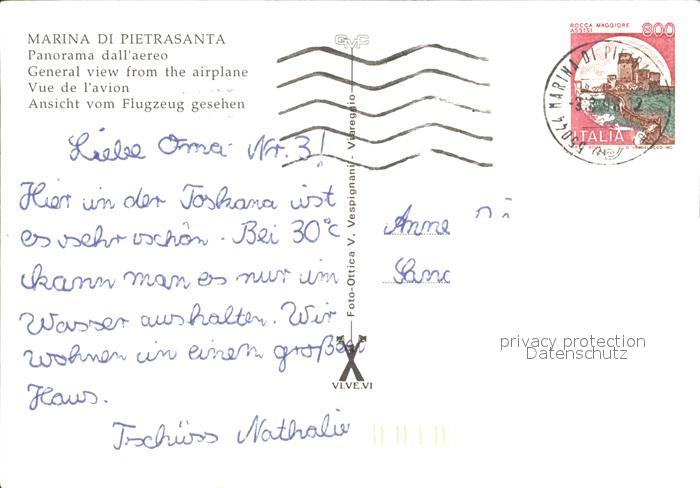 MARINA DI PIETRASANTA
Panorama dall'aereo
General view from the airplane
Vue de l'avion
Ansicht vom Flugzeug gesehen
GMC
ROCCA MAGGIORE
ASSISI
800
ITALIA
55044 MARINA DI
Liebe Oma Nr. 3!
Hier in der Toskana ist
es sehr schön. Bei 30°C
kann man es nur im
Wasser aushalten. Wir
wohnen in einem großen
Haus.
Tschüss Nathalie
Foto-Ottica V. Vespignani - Viareggio
VI.VE.VI
Anne
Sand
privacy protection
Datenschutz